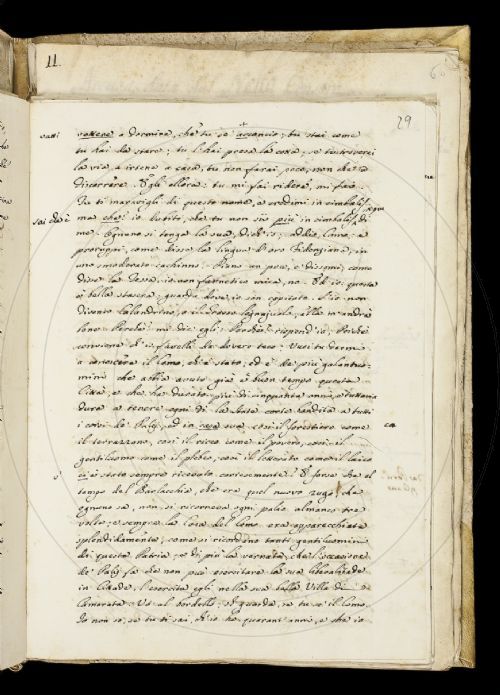 11.
29
vatti
vattene a dormire, che tu se acconcio; tu stai come
tu hai da stare; tu l'hai presa la cotta, se tu troverai
la via a irtene a casa, tu non farai poco, non che a
discorrere. Egli allora: tu mi fai ridere, mi fai
Tu ti maravigli di questo nome, e credimi in cimbalis,
sai che è
ma che? io dubito, che tu non sia più in cimbalis di
me. Ognuno si tenga la sua, diss'io: addio, Como: e
proruppi, come disse la lingua d'oro Fidenziana, in
uno moderato cachinno. Piano un poco, e dissemi, come
disse la Tessa, io non farnetico mica, no. Ed io: questa
è bella stasera, guarda dove io son capitato. S'io non
divento Calandrino, o il Grasso legnajuolo, ella m'andrà
bene. Perchè? mi die egli. Perchè? rispond'io: Perchè
conviene ch'io favelli da dovero teco. Vuoi tu darmi
a conoscere il Como, ch'è stato, ed è de' più galantuo-
mini che abbia avuto già è buon tempo questa
Città, e che ha durato più di cinquanta anni, e tuttavia
dura a tenere ogni dì la State corte bandita a tutti
i corsi de' Palj, ed in casa sua così il forestiero come
ca
il terrazzano, così il ricco come il povero, così il
gentiluomo come il plebeo, così il letterato come il laico
vi
ci è stato sempre ricevuto cortesemente? E forse che al
tempo del Barlacchia, che era quel nuovo zugo, che
ognuno sa, non si ricorreva ogni palio almanco tre
volte; e sempre la Casa del Como era apparecchiata
splendidamente, come si ricordano tanti gentiluomini
di questa Patria; e di più la vernata, che l'occasione
de' Palj fa che non può esercitare la sua liberalitade
in Cittade, l'esercita egli nella sua bella Villa di
Camarata. Va al bordello; e guarda, se tu se' il Como.
Io non so, se tu ti sai, ch'io ho quarant'anni, e che io